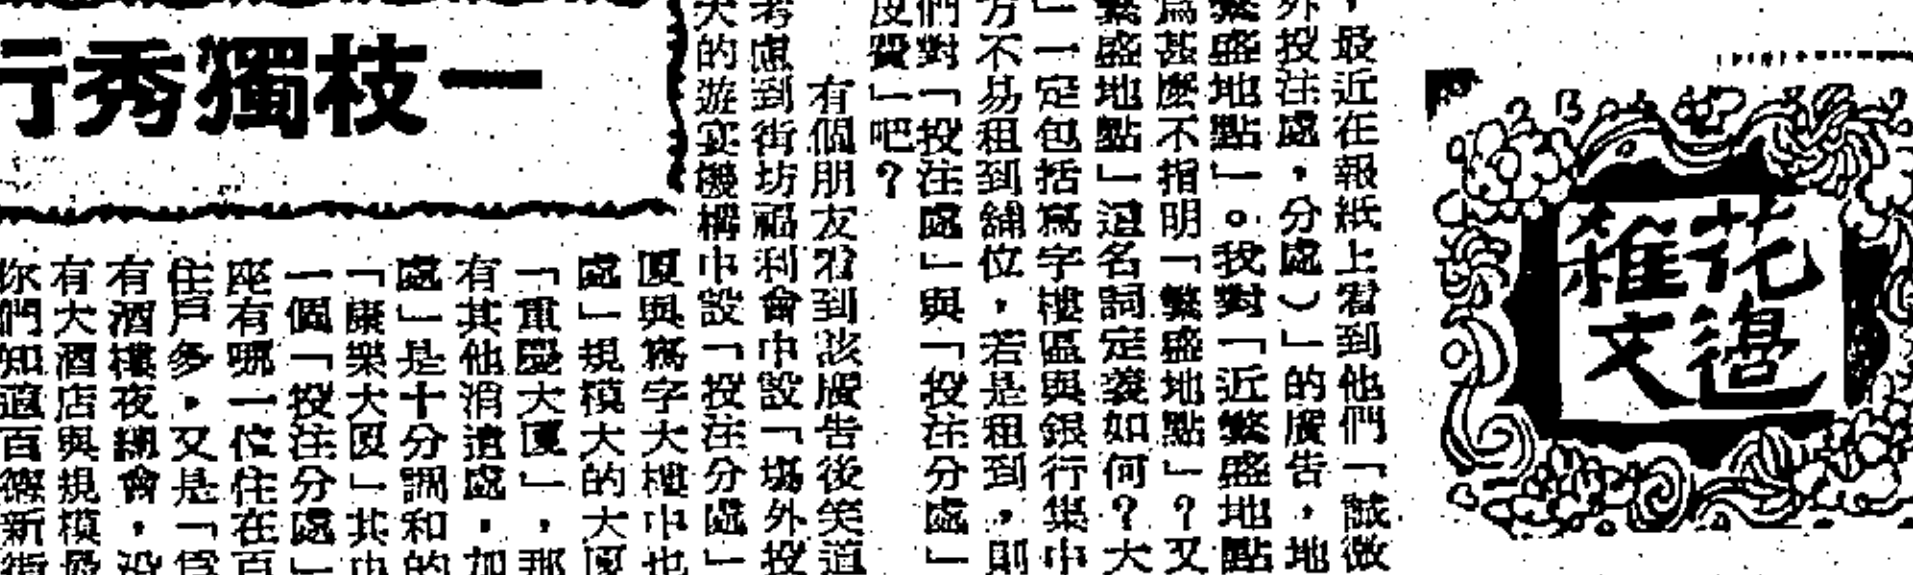 花邊
雜文
一枝獨秀行
，最近在報紙上看到他們「誠徵
外投注處，分處）」的廣告，地
繁盛地點」。我對「近繁盛地點
爲甚麼不指明「繁盛地點」？又
繁盛地點」這名詞定義如何？大
」一定包括寫字樓區與銀行集中
方不易租到舖位，若是租到，則
們對「投注處」與「投注分處」
費」吧？
有個朋友看到該廣告後笑道
考慮到街坊福利會中設「場外投
大的遊宴機構中設「投注分處」
厦與寫字大樓中也
處」規模大的大厦
「重慶大厦」，那
有其他消遣處，加
處」是十分調和的
「康樂大厦」其中
一個「投注分處」
座有哪一位住在百
住戶多，又是「
有酒樓夜總會，沒
有大酒店與規模最
你們知道百德新街